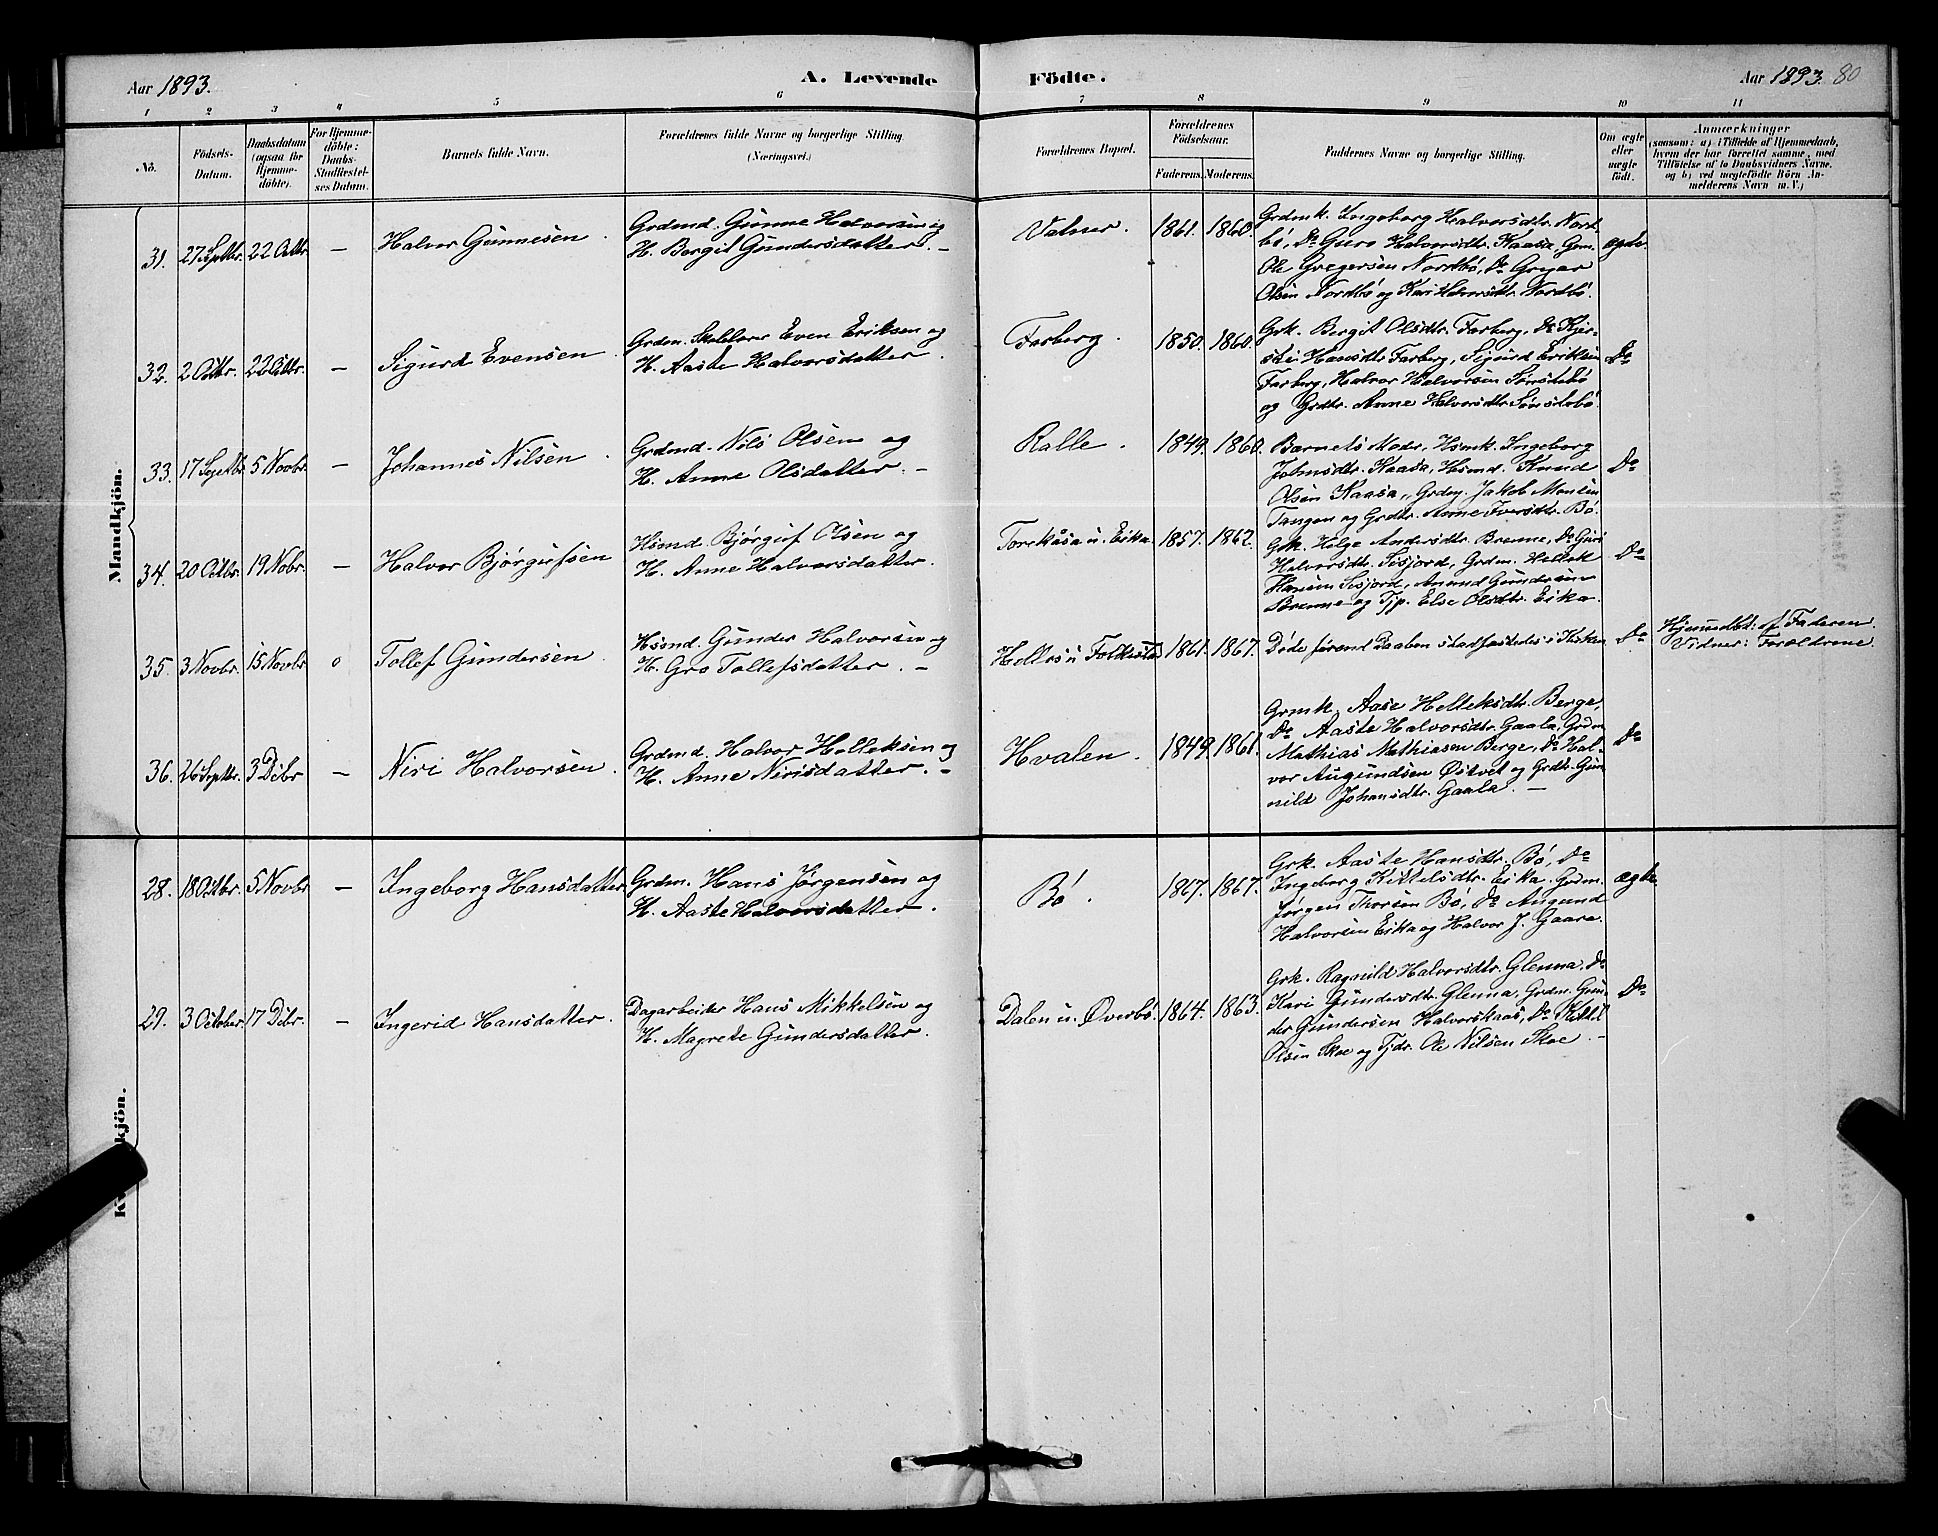 Aar 1893.
A. Levende Födte.
Aar 1893. 80
1 2 3 4 5 6 7 8 9 10 11
No.
Födsels-
Datum.
Daabsdatum
(ogsaa for
Hjemme-
döbte).
For Hjemme-
döbte:
Daabs-
Stadfæstel-
ses Datum.
Barnets fulde Navn.
Forældrenes fulde Navne og borgerlige Stilling.
(Næringsvei.)
Forældrenes Bopæl.
Forældrenes
Födselsaar.
Faderens. Moderens.
Faddernes Navne og borgerlige Stilling.
Om ægte
eller
uægte
födt.
Anmærkninger
(saasom: a) i Tilfælde af Hjemmedaab,
hvem der har forrettet samme, med
Tilföielse af to Daabsvidners Navne.
og b) ved uægtefödte Börn An-
melderens Navn m. V.)
Mandkjön.
31. 27 Septbr. 22 Octbr. — Halvor Gunnesen.
Grdmd. Gunne Halvorsen og
H. Bergit Gundersdatter. —
1861. 1860.
Grdmk. Ingeborg Halvorsdtr. Nord-
bø, Do Guro Halvorsdtr. Kaasa, Gm.
Ole Gregersen Nordbø, Do Gregar
Olsen Nordbø og Kari Halvorsdtr. Nordbø.
ægte.
32. 2 Octbr. 22 Octbr. — Sigurd Evensen.
Grdm. Skolelærer Even Eriksen og
H. Aaste Halvorsdatter.
Farberg. 1850. 1860.
Grk. Bergit Olsdtr. Farberg, Do Kjer-
sti Hansdtr. Farberg, Sigurd Eriksen
Farberg, Halvor Halvorsen Sønstebø
og Grdtr. Anne Halvorsdtr. Sønstebø.
Do
33. 17 Septbr. 5 Novbr. — Johannes Nilsen.
Grdmd. Nils Olsen og
H. Anne Olsdatter. —
Kalle. 1849. 1860.
Barnets Moder, Hsmk. Ingeborg
Johnsdtr. Kaasa, Hsmd. Knud
Olsen Kaasa, Grdm. Jakob Monsen
Tangen og Grdtr. Anne Iversdtr. Bø.
Do
34. 20 Octbr. 19 Nobr. — Halvor Bjørgufsen
Hsmd. Bjørguf Olsen og
H. Anne Halvorsdatter.
Torekåsa u. Eika. 1857. 1862.
Grk. Helge Andersdtr. Brenne, Do Guri
Halvorsdtr. Sisjord, Grdm. Hellek
Hansen Sisjord, Amund Gundersen
Brenne og Tjp. Else Olsdtr. Eika.
Do
35. 3 Novbr. 15 Novbr. 0 Tollef Gundersen.
Hsmd. Gunder Halvorsen og
H. Gro Tollefsdatter. —
1861. 1867.
Døde førend Daaben stadfæstedes i Kirken
Do
Hjemmedbt: af Faderen.
Vidner: Forældrene.
36. 26 Septbr. 3 Dcbr. — Niri Halvorsen.
Grdmd. Halvor Helleksen og
H. Anne Nirisdatter. —
Hvalen. 1849. 1861.
Grmk. Aase Helleksdtr. Berge,
Do Aaste Halvorsdtr. Gaala, Grdm.
Mathias Mathiasen Berge, Do Hal-
vor Augundsen Østvet og Grdtr. Gun-
nild Johansdtr. Gaala. —
Do
28. 18 Octbr. 5 Novbr. — Ingeborg Hansdatter
Grdm. Hans Jørgensen og
H. Aaste Halvorsdatter.
Bø. 1867. 1867.
Grk. Aaste Hansdtr. Bø, Do
Ingeborg Kittelsdtr. Eika. Grdm.
Jørgen Thorsen Bø, Do Augund
Halvorsen Eika og Halvor J. Gaara.
ægte.
29. 3 October. 17 Dcbr. — Ingerid Hansdatter.
Dagarbeider Hans Mikkelsen og
H. Magrete Gundersdatter.
Dalen u. Øverbø. 1864. 1863.
Grk. Ragnild Halvorsdtr. Glenna, Do
Kari Gundersdtr. Glenna, Grdm. Gun-
der Gundersen Halvorskaas, Do Kittil
Olsen Skoe og Tjdr. Ole Nilsen Skoe. —
Do